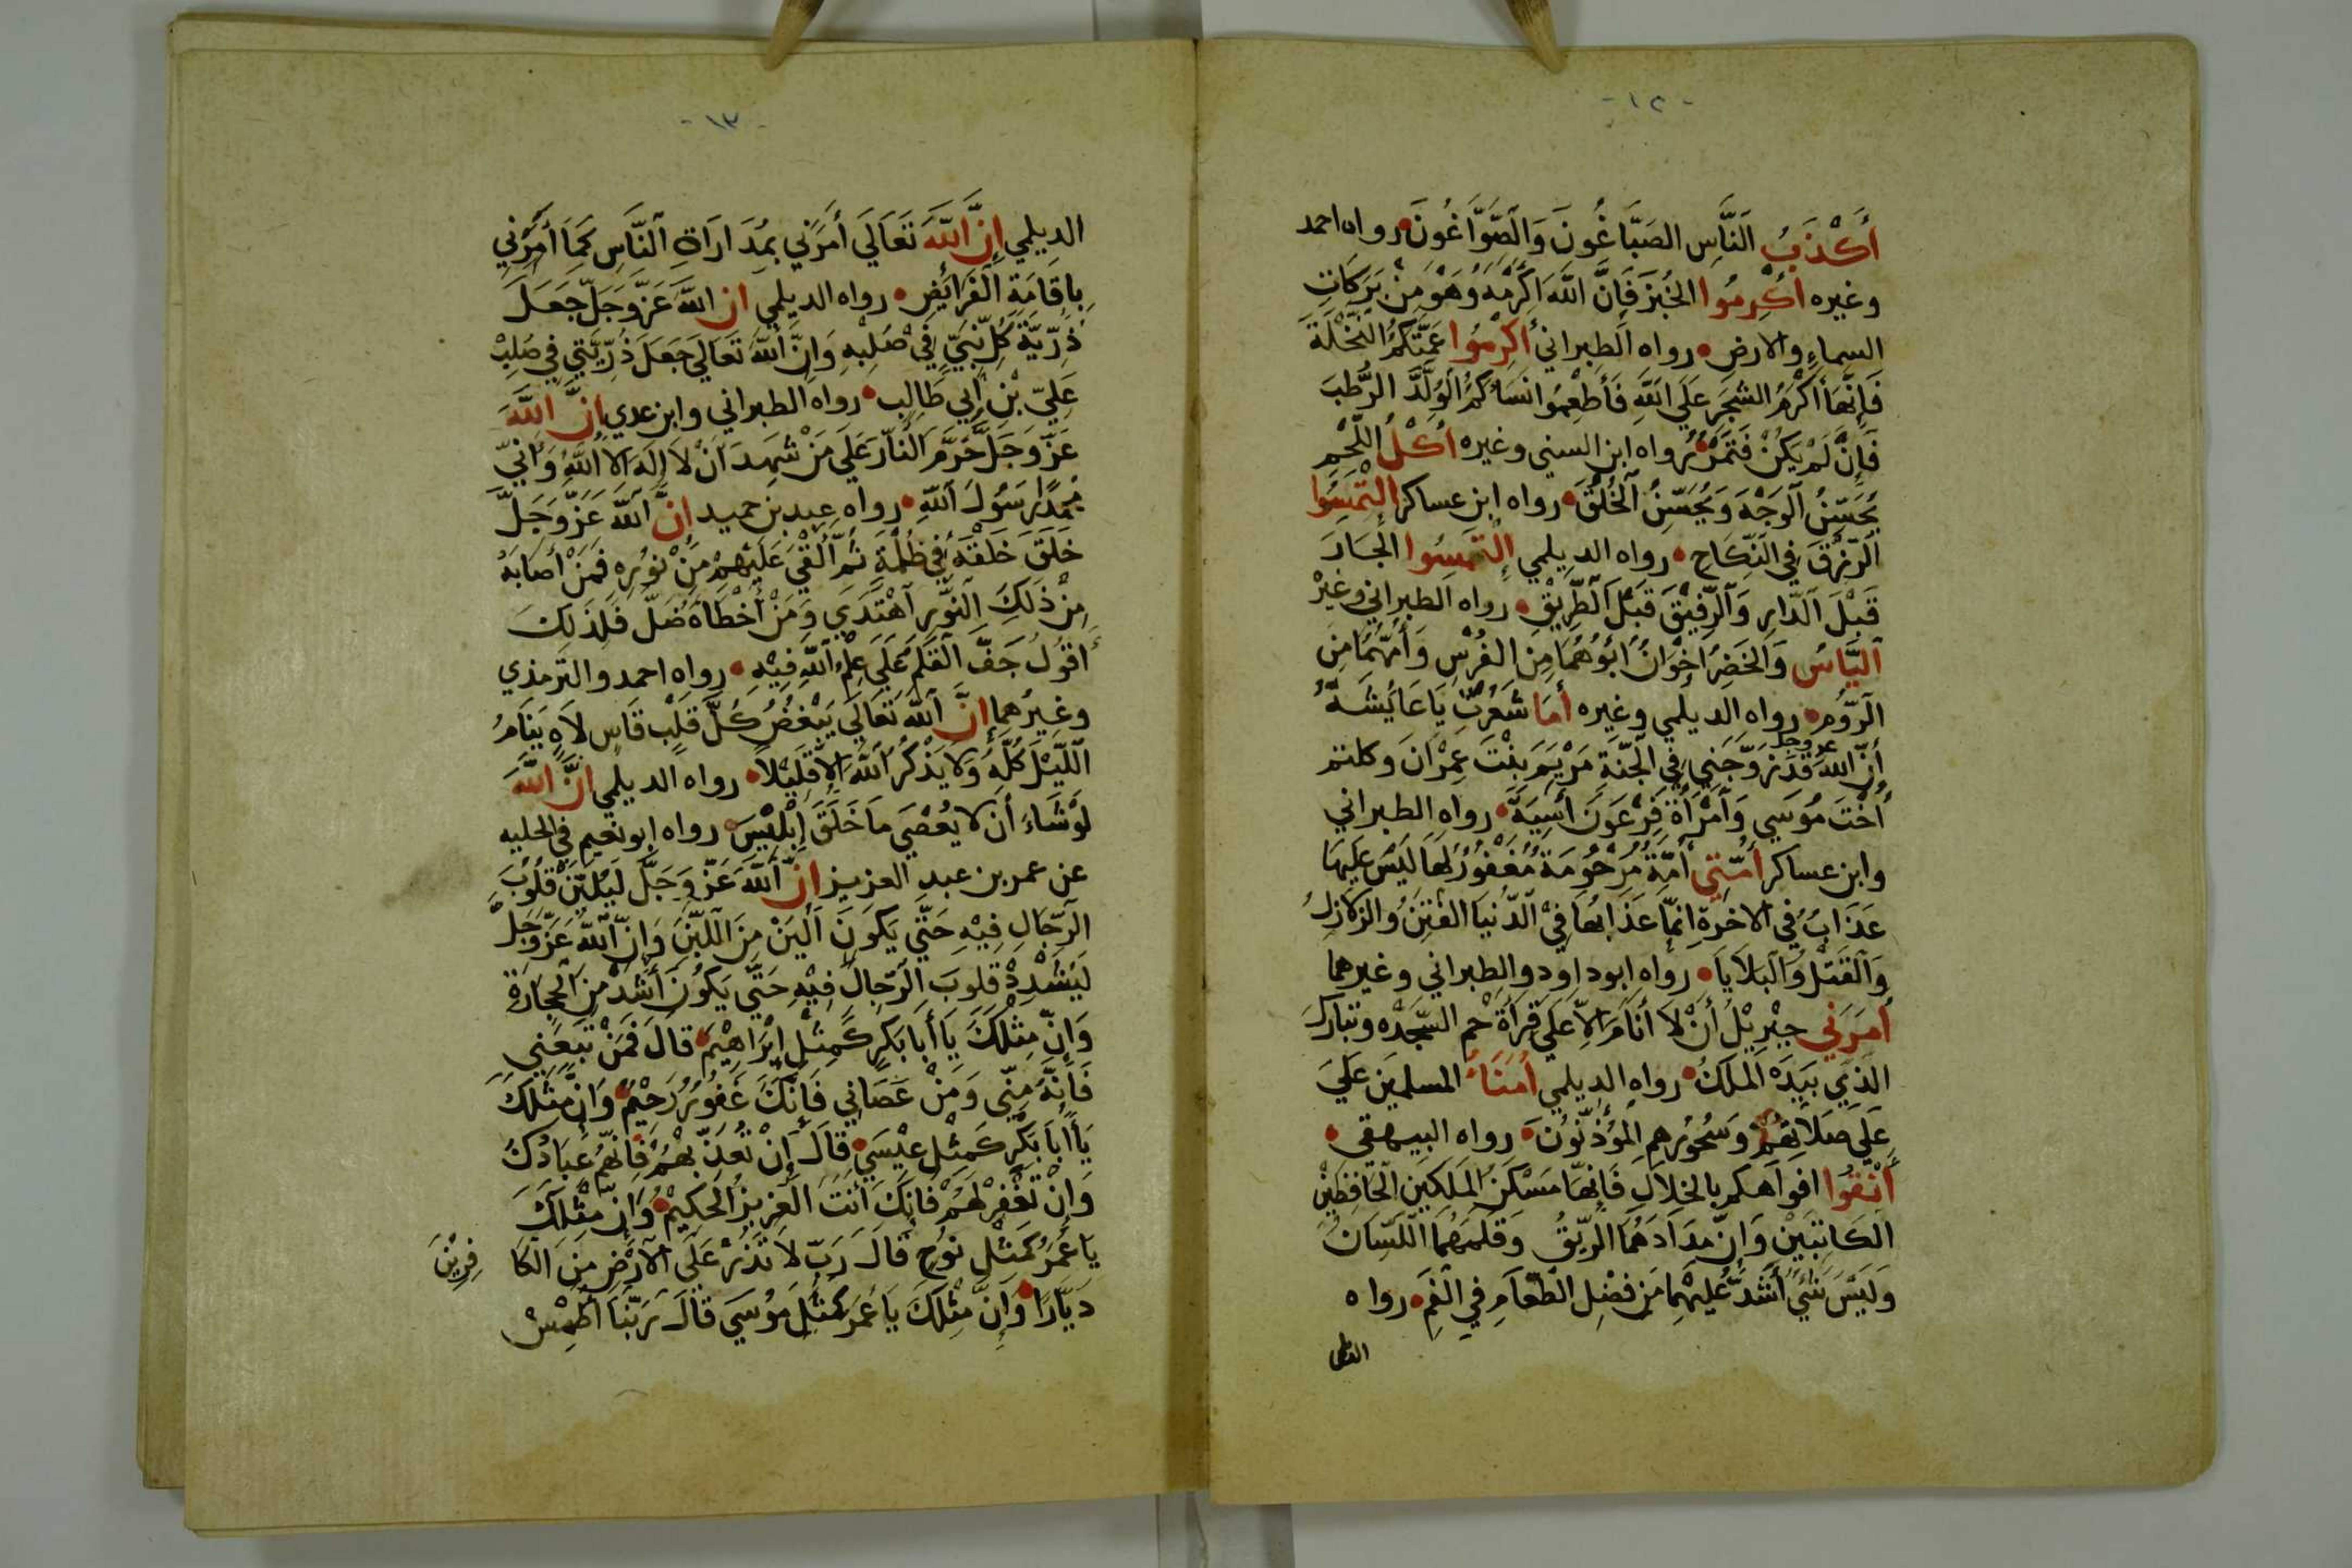 - ١٢ -
أَكْذَبُ النَّاسِ الصَبَّاغُونَ وَالصَّوَّاغُونَ رواه احمد
وغيره أكْرِمُوا الخُبْزَ فَإِنَّ اللَّهَ اكْرَمَهُ وَهُوَ مِنْ بَرَكَاتِ
السماءِ والارض رواه الطبراني أكْرِمُوا عَمَّتَكُمُ النَّخْلَةَ
فَإِنَّهَا أَكْرَمُ الشجَرِ عَلَى اللَّهِ فَأَطْعِمُوا نسَاءَكُمُ الْوُلَّدَ الرُّطَبَ
فَإِنْ لَمْ يَكُنْ فَتَمْرٌ رواه ابن السني وغيره أكْلُ اللَّحْمِ
يُحَسِّنُ الْوَجْهَ وَيُحَسِّنُ الْخُلُقَ رواه ابن عساكر الْتَمِسُوا
الرِّزْقَ في النِّكَاحِ رواه الديلمي إلْتَمِسُوا الْجَارَ
قَبْلَ الدَّارِ وَالرَّفِيْقَ قَبْلَ الطَّرِيْقِ رواه الطبراني وغيْر
الْيَاسُ وَالخَضِرُ اخْوَانٌ أَبُوْهُمَا مِنَ الفُرْسِ وَأُمُّهُمَا مِنَ
الرُّوْمِ رواه الديلمي وغيره أمَا شَعَرْتِ يَا عَائِشَةُ
أَنَّ اللَّهَ عز وجل قَدْ زَوَّجَنِي فِي الْجَنَّةِ مَرْيَمَ بِنْتَ عِمْرَانَ وكلتم
أُخْتَ مُوسَى وَامْرَأَةَ فِرْعَوْنَ آسِيَةَ رواه الطبراني
وابن عساكر أُمَّتِي أُمَّةٌ مَرْحُومَةٌ مُغْفُوْرٌ لَهَا لَيْسَ عَلَيْهَا
عَذَابٌ في الاخرَةِ انَّمَا عَذَابُهَا فِيْ الدُّنْيَا الفِتَنُ والزَلازِلُ
وَالْقَتْلُ وَالْبَلايَا رواه ابوداود والطبراني وغيرهما
أَمَرَنِي جِبْرِيْلُ أَنْ لا أَنَامَ الاَّ عَلَى قِرَأَة حم السَّجْدَه وتبَارَكَ
الذي بيَدِه المُلكُ رواه الديلمي أُمَنَاءُ المسلمِيَن عَلَى
عَلَى صَلاتِهِمْ وَسُحُوْرِهِمِ الْمُؤَذِّنُوْنَ رواه البيهقي
أَنْقُوا افْوَاهَكم بالخِلَالِ فَإِنَّهَا مَسْكَنُ المَلَكَيْنِ الْحَافِظَيْنِ
الكَاتِبَيْنِ وَإِنَّ مِدَادَهُمَا الرِّيْقُ وَقَلَمَهُمَا اللِّسَانُ
وَلَيْسَ شَيْءٌ أَشَدَّ عَلَيْهِمَا مِنْ فَضْلِ الطَّعَامِ فِي الْفَمِ رواه
- ١٣ -
الديلمي إنَّ اللَّهَ تَعَالَى أَمَرَنِي بِمُدَارَاةِ النَّاسِ كَمَا أَمَرَنِي
بِإِقَامَةِ الْفَرَائِضِ رواه الديلمي ان اللَّهَ عَزَّوَجَلَّ جَعَلَ
ذُرِّيَّةَ كُلِّ نَبِيٍّ فِيْ صُلْبِهِ وَإِنَّ اللَّهَ تَعَالَى جَعَلَ ذُرِّيَّتِي فِي صُلْبِ
عَلِيِّ بْنِ أَبِي طَالِب رواه الطبراني وابن عدي إنَّ اللَّهَ
عَزَّ وَجَلَّ حَرَّمَ النَّارَ عَلَى مَنْ شَهِدَ أَنْ لا إِلَهَ الاَّ اللَّهُ وَأَنِّي
مُحَمَّدًا رَسُولَ اللَّهِ رواه عبد بن حميد إنَّ اللَّهَ عَزَّوَجَلَّ
خَلَقَ خَلْقَهُ فِي ظُلْمَةٍ ثُمَّ أَلْقَى عَلَيْهِمْ مِنْ نُوْرِهِ فَمَنْ أَصَابَهُ
مِنْ ذَلِكَ النُّوْرِ اهْتَدَى وَمَنْ أَخْطَأَهُ ضَلَّ فَلِذَلِكَ
أَقُولُ جَفَّ الْقَلَمُ عَلَى عِلْمِ اللَّهِ فِيْهِ رواه احمد والترمذي
وغيْرُهما إنَّ اللَّهَ تَعَالَى يَبْغَضُ كُلَّ قَلْبٍ قَاسٍ لاَهٍ يَنَامُ
اللَّيْلَ كُلَّهُ وَلا يَذْكُرُ اللَّهَ الاَّ قَلِيْلاً رواه الديلمي انَّ اللَّهَ
لَوْ شَاءَ أَن لا يُعْصَى مَا خَلَقَ إِبْلِيْسَ رواه ابو نعيم في الحليه
عن عمر بن عبد العزيز انَّ اللَّهَ عَزَّ وَجَلَّ لَيُلَيِّنُ قُلُوْبَ
الرِّجَالِ فِيْهِ حَتَّى يَكُوْنَ أَلْيَنَ مِنَ اللَّبَنِ وَإِنَّ اللَّهَ عَزَّوَجَلَّ
لَيُشَدِّدْ قُلُوبَ الرِّجَالِ فِيْهِ حَتَّى يَكُوْنَ أَشَدَّ مِنَ الْحِجَارَةِ
وَإِنَّ مِثْلَكَ يَا أَبَا بَكْرٍ كَمَثْلِ إِبْرَاهِيْمَ قَالَ فَمَنْ تَبِعَنِي
فَإِنَّهُ مِنِّي وَمَنْ عَصَانِي فَإِنَّكَ غَفُوْرٌ رَحِيْمٌ وَإِنَّ مَثَلَكَ
يَا أَبَا بَكْرٍ كَمَثَلِ عِيْسَى قَالَ إِنْ تُعَذِّبْهُمْ فَإِنَّهُمْ عِبَادُكَ
وَإِنْ تَغْفِرْ لَهُمْ فَإِنَّكَ أَنْتَ الْعَزِيزُ الْحَكِيْمُ وَإِنَّ مِثْلَكَ
يَا عُمَرُ كَمَثَلِ نُوْحٍ قَالَ رَبِّ لاَ تَذَرْ عَلَى الأَرْضِ مِنَ الكَافِرِيْنَ
دَيَّارًا وَإِنَّ مِثْلَكَ يَا عُمَرُ كَمَثَلِ مُوْسَى قَالَ رَبَّنَا اطْمِسْ